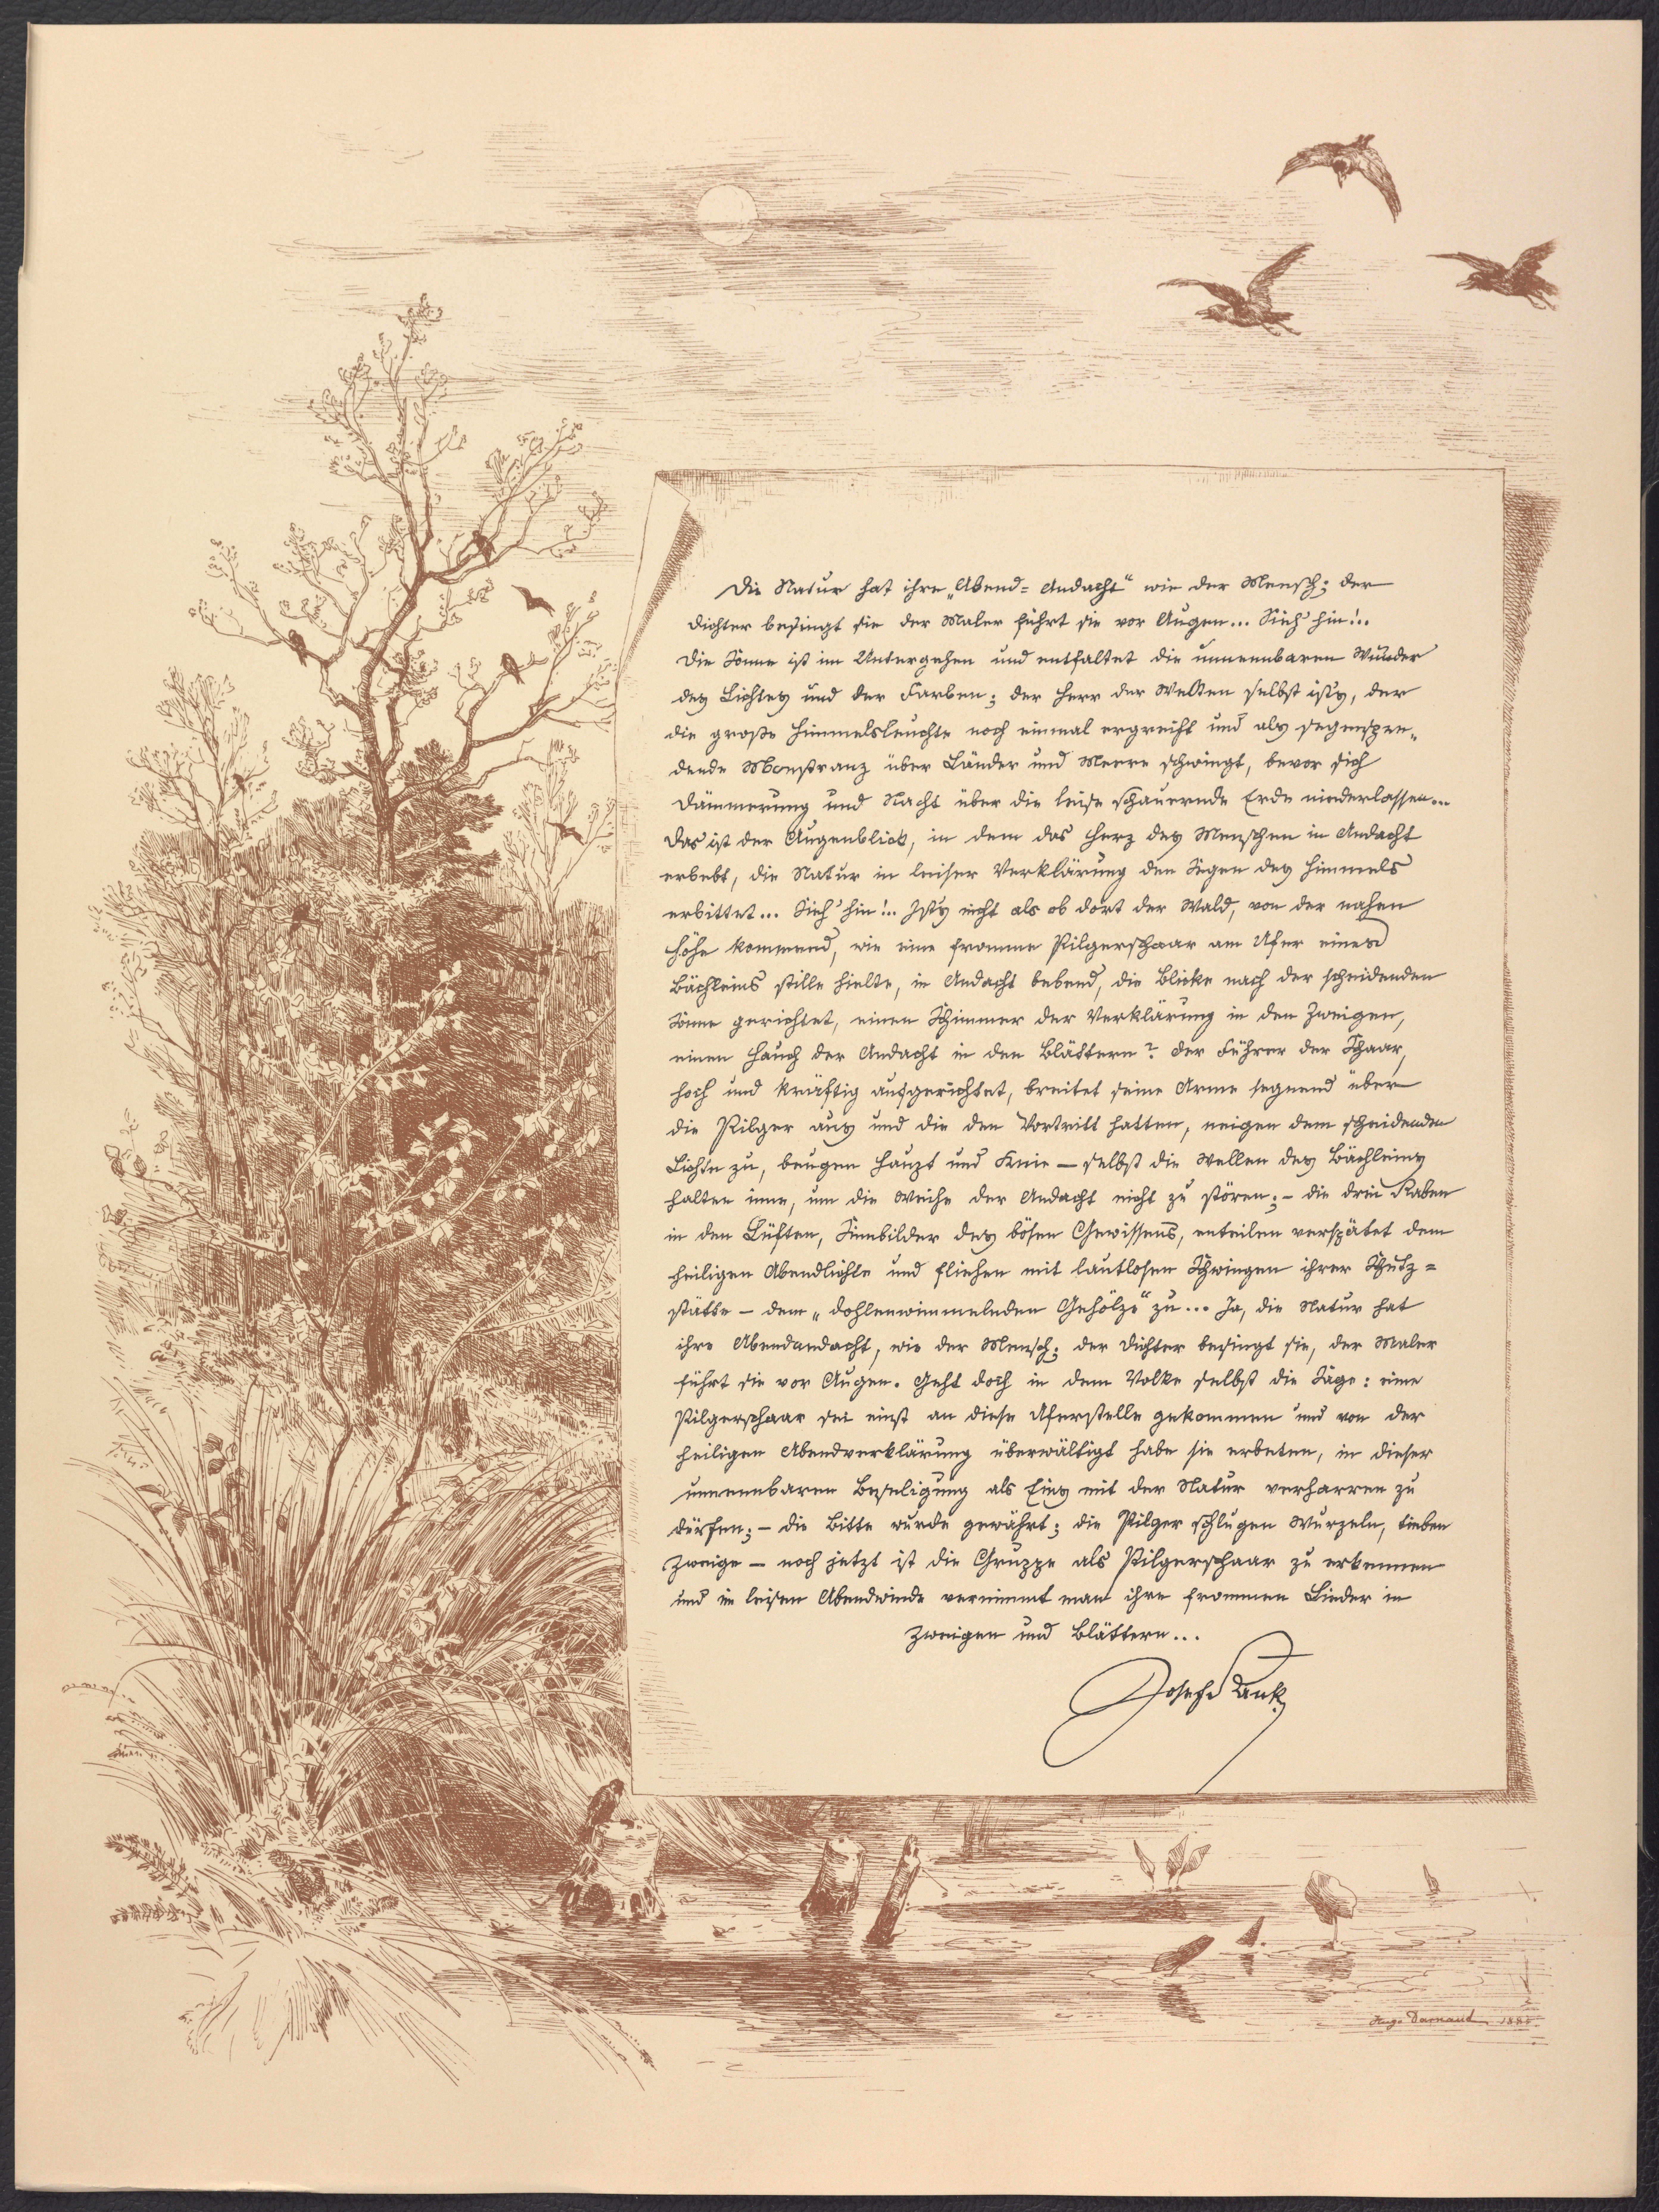 Die Natur hat ihre „Abend=Andacht“ wie der Mensch; der
Dichter besingt sie der Maler führt sie vor Augen... Sieh' hin!..
Die Sonne ist im Untergehen und entfaltet die unnennbaren Wunder
des Lichtes und der Farben; der Herr der Welten selbst ist's, der
die große Himmelsleuchte noch einmal ergreift und als segenspen„
dende Monstranz über Länder und Meere schwingt, bevor sich
Dämmerung und Nacht über die leise schauernde Erde niederlassen...
Das ist der Augenblick, in dem das Herz des Menschen in Andacht
erbebt, die Natur in leiser Verklärung den Segen des Himmels
erbittet... Sieh' hin!.. Ist's nicht als ob dort der Wald, von der nahen
Höhe kommend, wie eine fromme Pilgerschaar am Ufer eines
Bächleins stille hielte, in Andacht bebend, die Blicke nach der scheidenden
Sonne gerichtet, einen Schimmer der Verklärung in den Zweigen,
einen Hauch der Andacht in den Blättern? Der Führer der Schaar,
hoch und kräftig aufgerichtet, breitet seine Arme segnend über
die Pilger aus und die den Vortritt hatten, neigen dem scheidenden
Lichte zu, beugen Haupt und Knie — selbst die Wellen des Bächleins
halten inne, um die Weihe der Andacht nicht zu stören; — die drei Raben
in den Lüften, Sinnbilder des bösen Gewissens, enteilen verspätet dem
heiligen Abendlichte und fliehen mit lautlosen Schwingen ihrer Schutz=
stätte — dem „dohlenwimmelnden Gehölze“ zu... Ja, die Natur hat
ihre Abendandacht, wie der Mensch; der Dichter besingt sie, der Maler
führt sie vor Augen. Geht doch in dem Volke selbst die Sage: eine
Pilgerschaar sei einst an diese Uferstelle gekommen und von der
heiligen Abendverklärung überwältigt habe sie erbeten, in dieser
unnennbaren Beseligung als Eins mit der Natur verharren zu
dürfen; — die Bitte wurde gewährt; die Pilger schlugen Wurzeln, trieben
Zweige — noch jetzt ist die Gruppe als Pilgerschaar zu erkennen
und im leisen Abendwinde vernimmt man ihre frommen Lieder in
Zweigen und Blättern...
Josef Rank
Hugo Darnaut